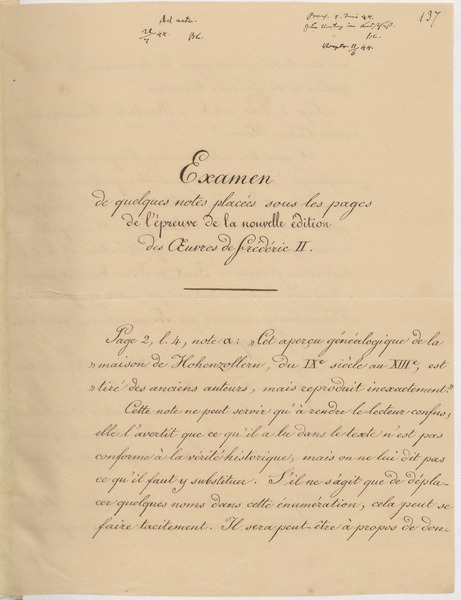 137
Ad acta.
44. Bh.
44.
Examen
de quelques notes placées sous les pages
de l'épreuve de la nouvelle édition
des Œuvres de Frédéric II.
Page 2, l. 4, note a: „Cet aperçu généalogique de la
„maison de Hohenzollern, du IXe siècle au XIIIe, est
„tiré des anciens auteurs, mais reproduit inexactement."
Cette note ne peut servir qu'à rendre le lecteur confus,
elle l'avertit que ce qu'il a lu dans le texte n'est pas
conforme à la vérité historique, mais on ne lui dit pas
ce qu'il faut y substituer. S'il ne s'agit que de dépla-
cer quelques noms dans cette énumération, cela peut se
faire tacitement. Il sera peut-être à propos de don-